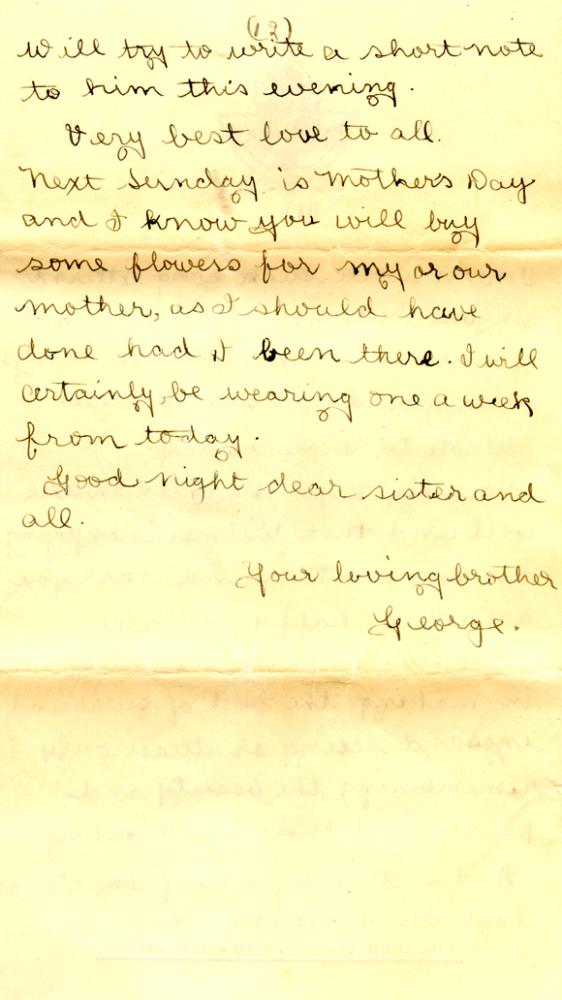 (12)
will try to write a short note
to him this evening.
Very best love to all.
Next Sunday is Mother's Day
and I know you will buy
some flowers for my or our
mother, as I should have
done had I been there. I will
certainly be wearing one a week
from today.
Good night dear sister and
all.
Your loving brother
George.